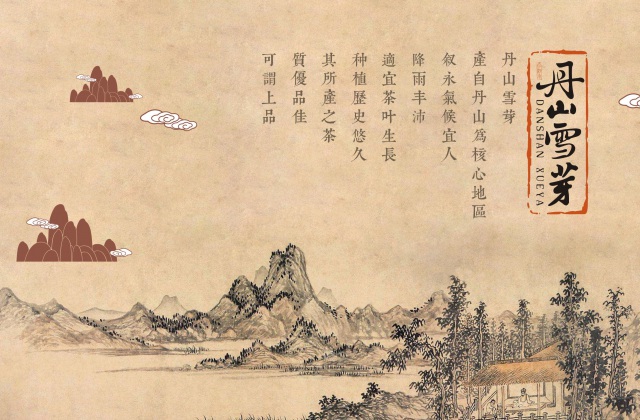 丹山雪芽
DANSHAN XUEYA
丹山雪芽
產自丹山爲核心地區
叙永氣候宜人
降雨丰沛
適宜茶叶生長
种植歷史悠久
其所產之茶
質優品佳
可謂上品